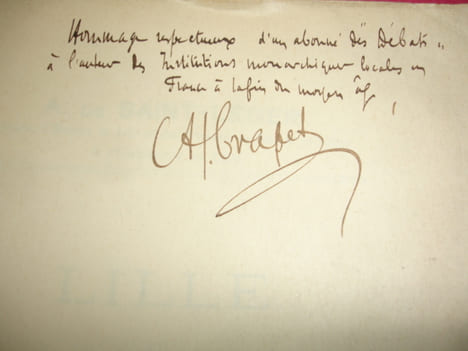 Hommage respectueux d'un abonné des Débats „
à l'auteur des Institutions monarchiques locales en
France à la fin du moyen âge,
A. Crapet
LILLE